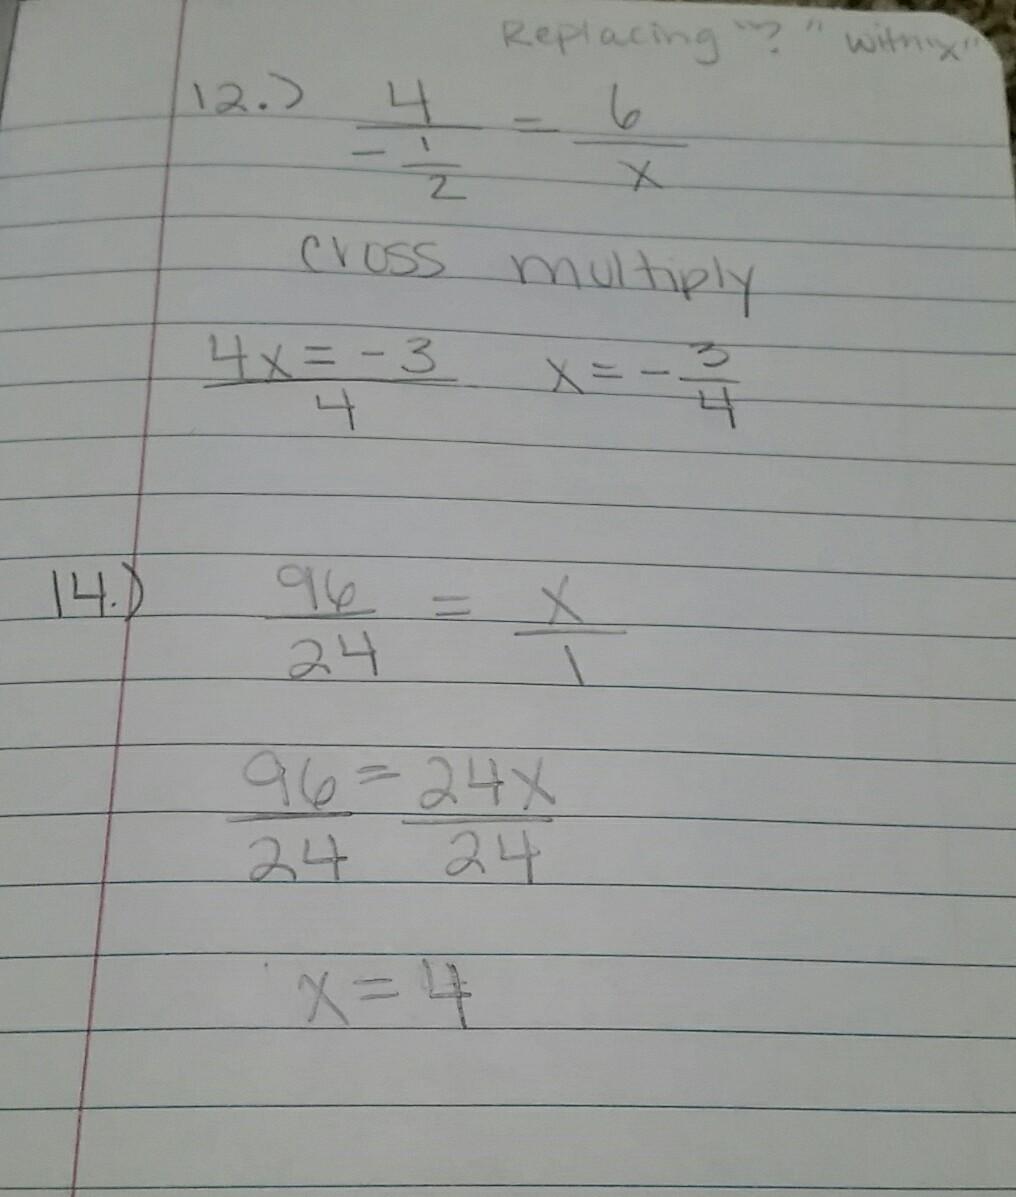 Replacing "?" with "x"
12.) 4/(-1/2) = 6/x
cross multiply
4x = -3/4   x = -3/4
14.) 96/24 = x/1
96/24 = 24x/24
x = 4